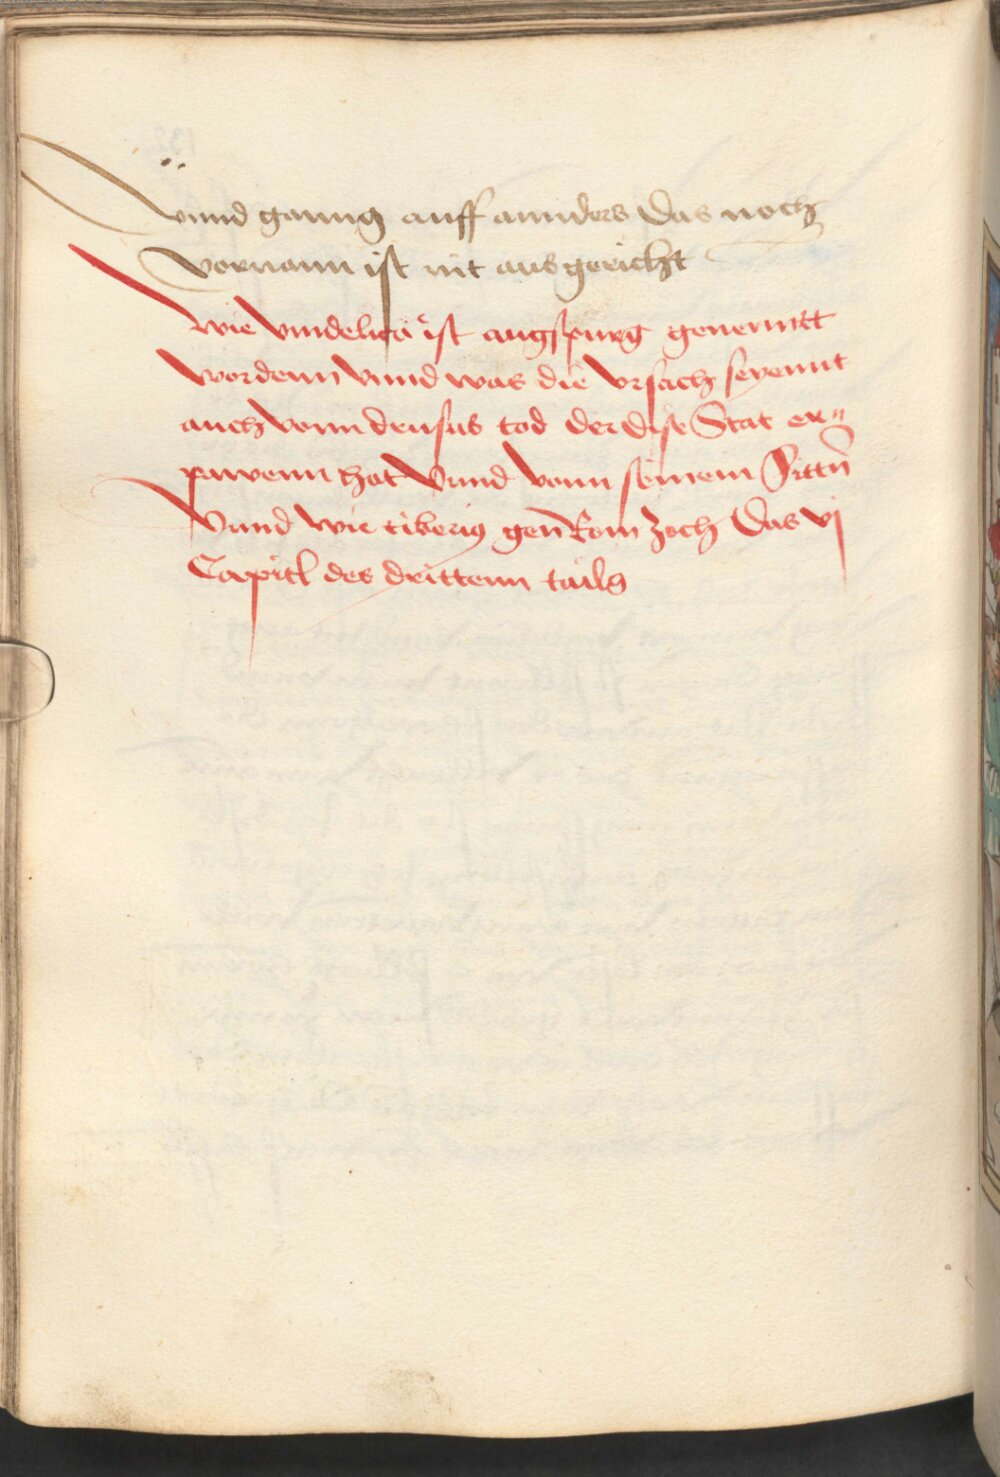 vnnd ganng auff annders Das noch
vornann ist nit ausgericht
Wie vindelica ist augspurg genenntt
wordenn Vnnd was die vrsach seyennt
auch vonn drusus tod der dise Stat er-
pawenn hat Vnnd vonn seinem Sittn̄
Vnnd wie tiberiꝯ gen Rom zoch Das vj
Capitl des drittenn tails